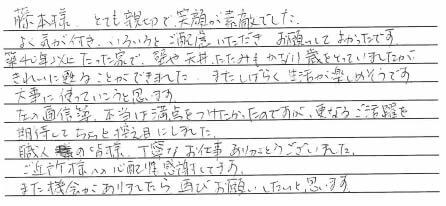 藤本様、とても親切で笑顔が素敵でした。
よく気が付き、いろいろとご配慮いただき お願いしてよかったです
築40年以上たった家で、壁や天井、たたみもかなり歳をとっていましたが
きれいに甦ることができました。またしばらく生活が楽しめそうです
大事に使っていこうと思います。
左の通信簿、本当は満点をつけたかったのですが、更なるご活躍を
期待してちょっと控え目にしました。
職人の皆様、丁寧なお仕事ありがとうございました。
ご近所様への心配り感謝してます。
また機会がありましたら 再びお願いしたいと思います